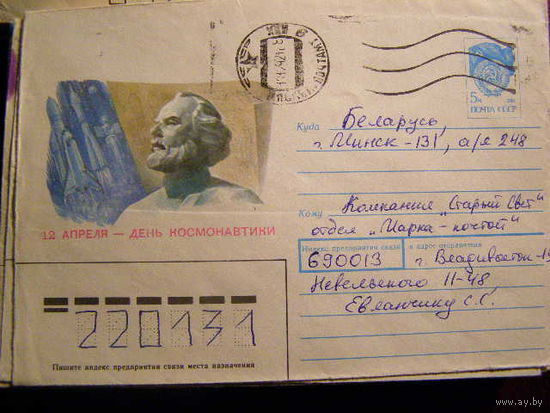 5к
ПОЧТА СССР
Куда Беларусь,
г. Минск-131, а/я 248
Кому Компания „Старый Свет"
отдел „Марка-почтой"
12 АПРЕЛЯ — ДЕНЬ КОСМОНАВТИКИ
Индекс предприятия связи и адрес отправителя
690013 г. Владивосток-
Невельского 11-48,
Евланчику С.С.
220131
Пишите индекс предприятия связи места назначения
www.ay.by